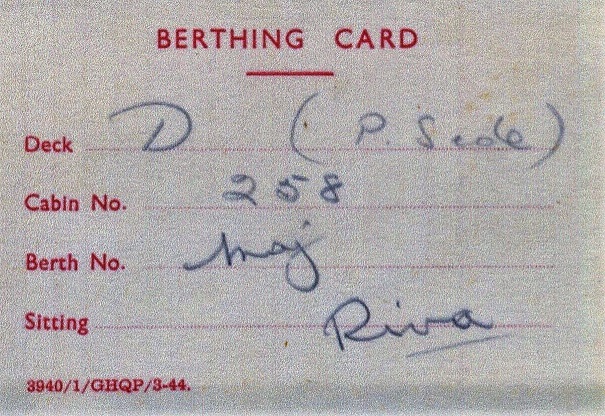 BERTHING CARD
Deck D (P. Side)
Cabin No. 258
Berth No. Maj
Sitting Riva
3940/1/GHQP/3-44.